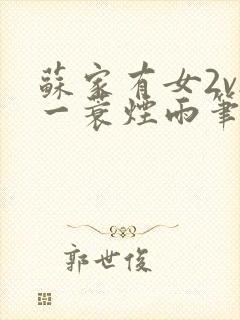 蘇家有女2v
一蓑煙雨筆
郭世俊